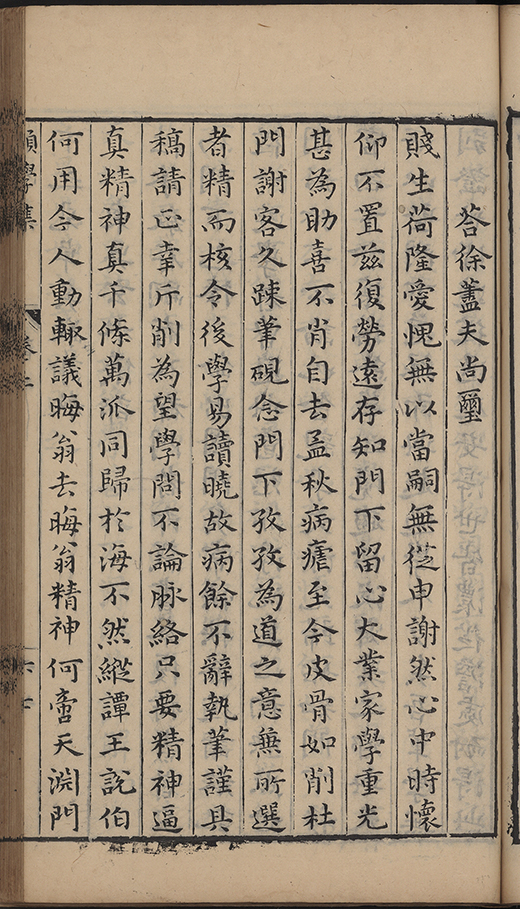 荅徐蓋夫尚璽
賤生荷隆愛愧無以當嗣無從申謝然心中時懷
仰不置兹復勞遠存知門下留心大業家學重光
甚為助喜不肖自去孟秋病瘧至今皮骨如削杜
門謝客久踈筆硯念門下孜孜為道之意無所選
者精而核令後學易讀曉故病餘不辭執筆謹具
稿請正幸斤削為望學問不論脉絡只要精神逼
真精神真千條萬派同歸於海不然縱譚王說伯
何用今人動輙議晦翁去晦翁精神何啻天淵門
學集
卷二
六七